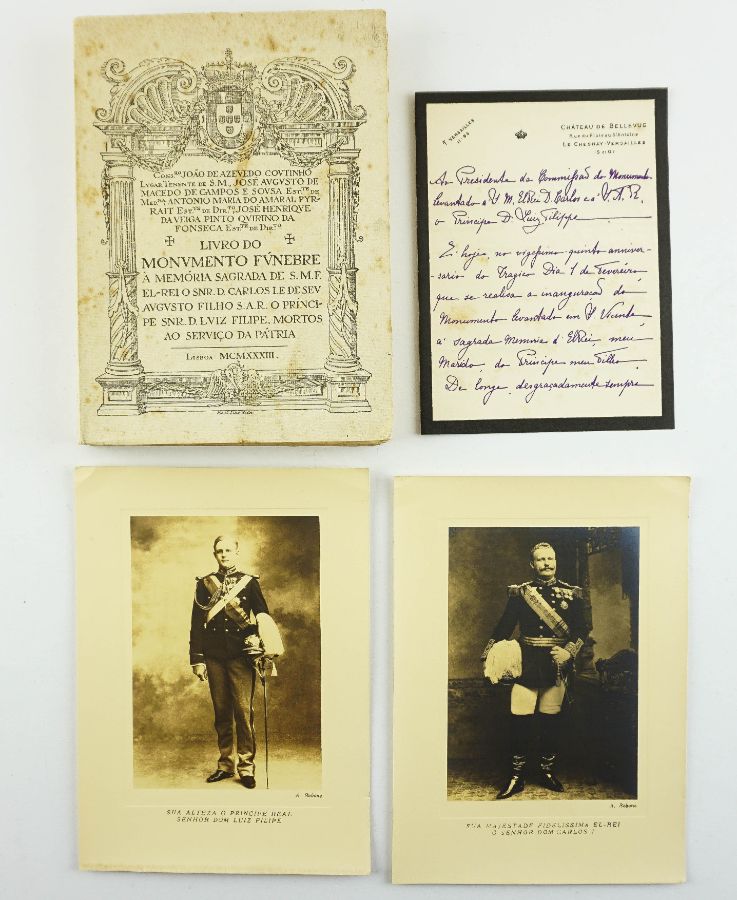 COM.RO JOÃO DE AZEVEDO COVTINHO
LVGAR TENENTE DE S.M., JOSÉ AVGVSTO DE
MACEDO DE CAMPOS E SOVSA EST.TE DE
MED.NA ANTONIO MARIA DO AMARAL PYR-
RAIT EST.TE DE DIR.TO, JOSÉ HENRIQVE
DA VEIGA PINTO QVIRINO DA
FONSECA EST.TE DE DIR.TO
LIVRO DO
MONVMENTO FÚNEBRE
À MEMÓRIA SAGRADA DE S.M.F.
EL-REI O SNR. D. CARLOS I, E DE SEV
AVGVSTO FILHO S.A.R. O PRÍNCI-
PE SNR. D. LVIZ FILIPE, MORTOS
AO SERVIÇO DA PÁTRIA
LISBOA MCMXXXIII
T. VERSAILLES
CHÂTEAU DE BELLEVUE
LE CHESNAY-VERSAILLES
Ao Presidente da Commissão do Monumento
levantado a S. M. ElRei D. Carlos e a S. A. R.
o Principe D. Luiz Filippe
É hoje, no vigesimo quinto anniver-
sario do Tragico Dia 1 de Fevereiro
que se realisa a inauguração do
Monumento levantado em S. Vicente
á sagrada Memoria d'ElRei, meu
Marido, do Principe meu Filho.
De longe, desgraçadamente sempre
A. Bobone
SUA ALTEZA O PRINCIPE REAL
SENHOR DOM LUIZ FILIPE
A. Bobone
SUA MAJESTADE FIDELISSIMA EL-REI
O SENHOR DOM CARLOS I